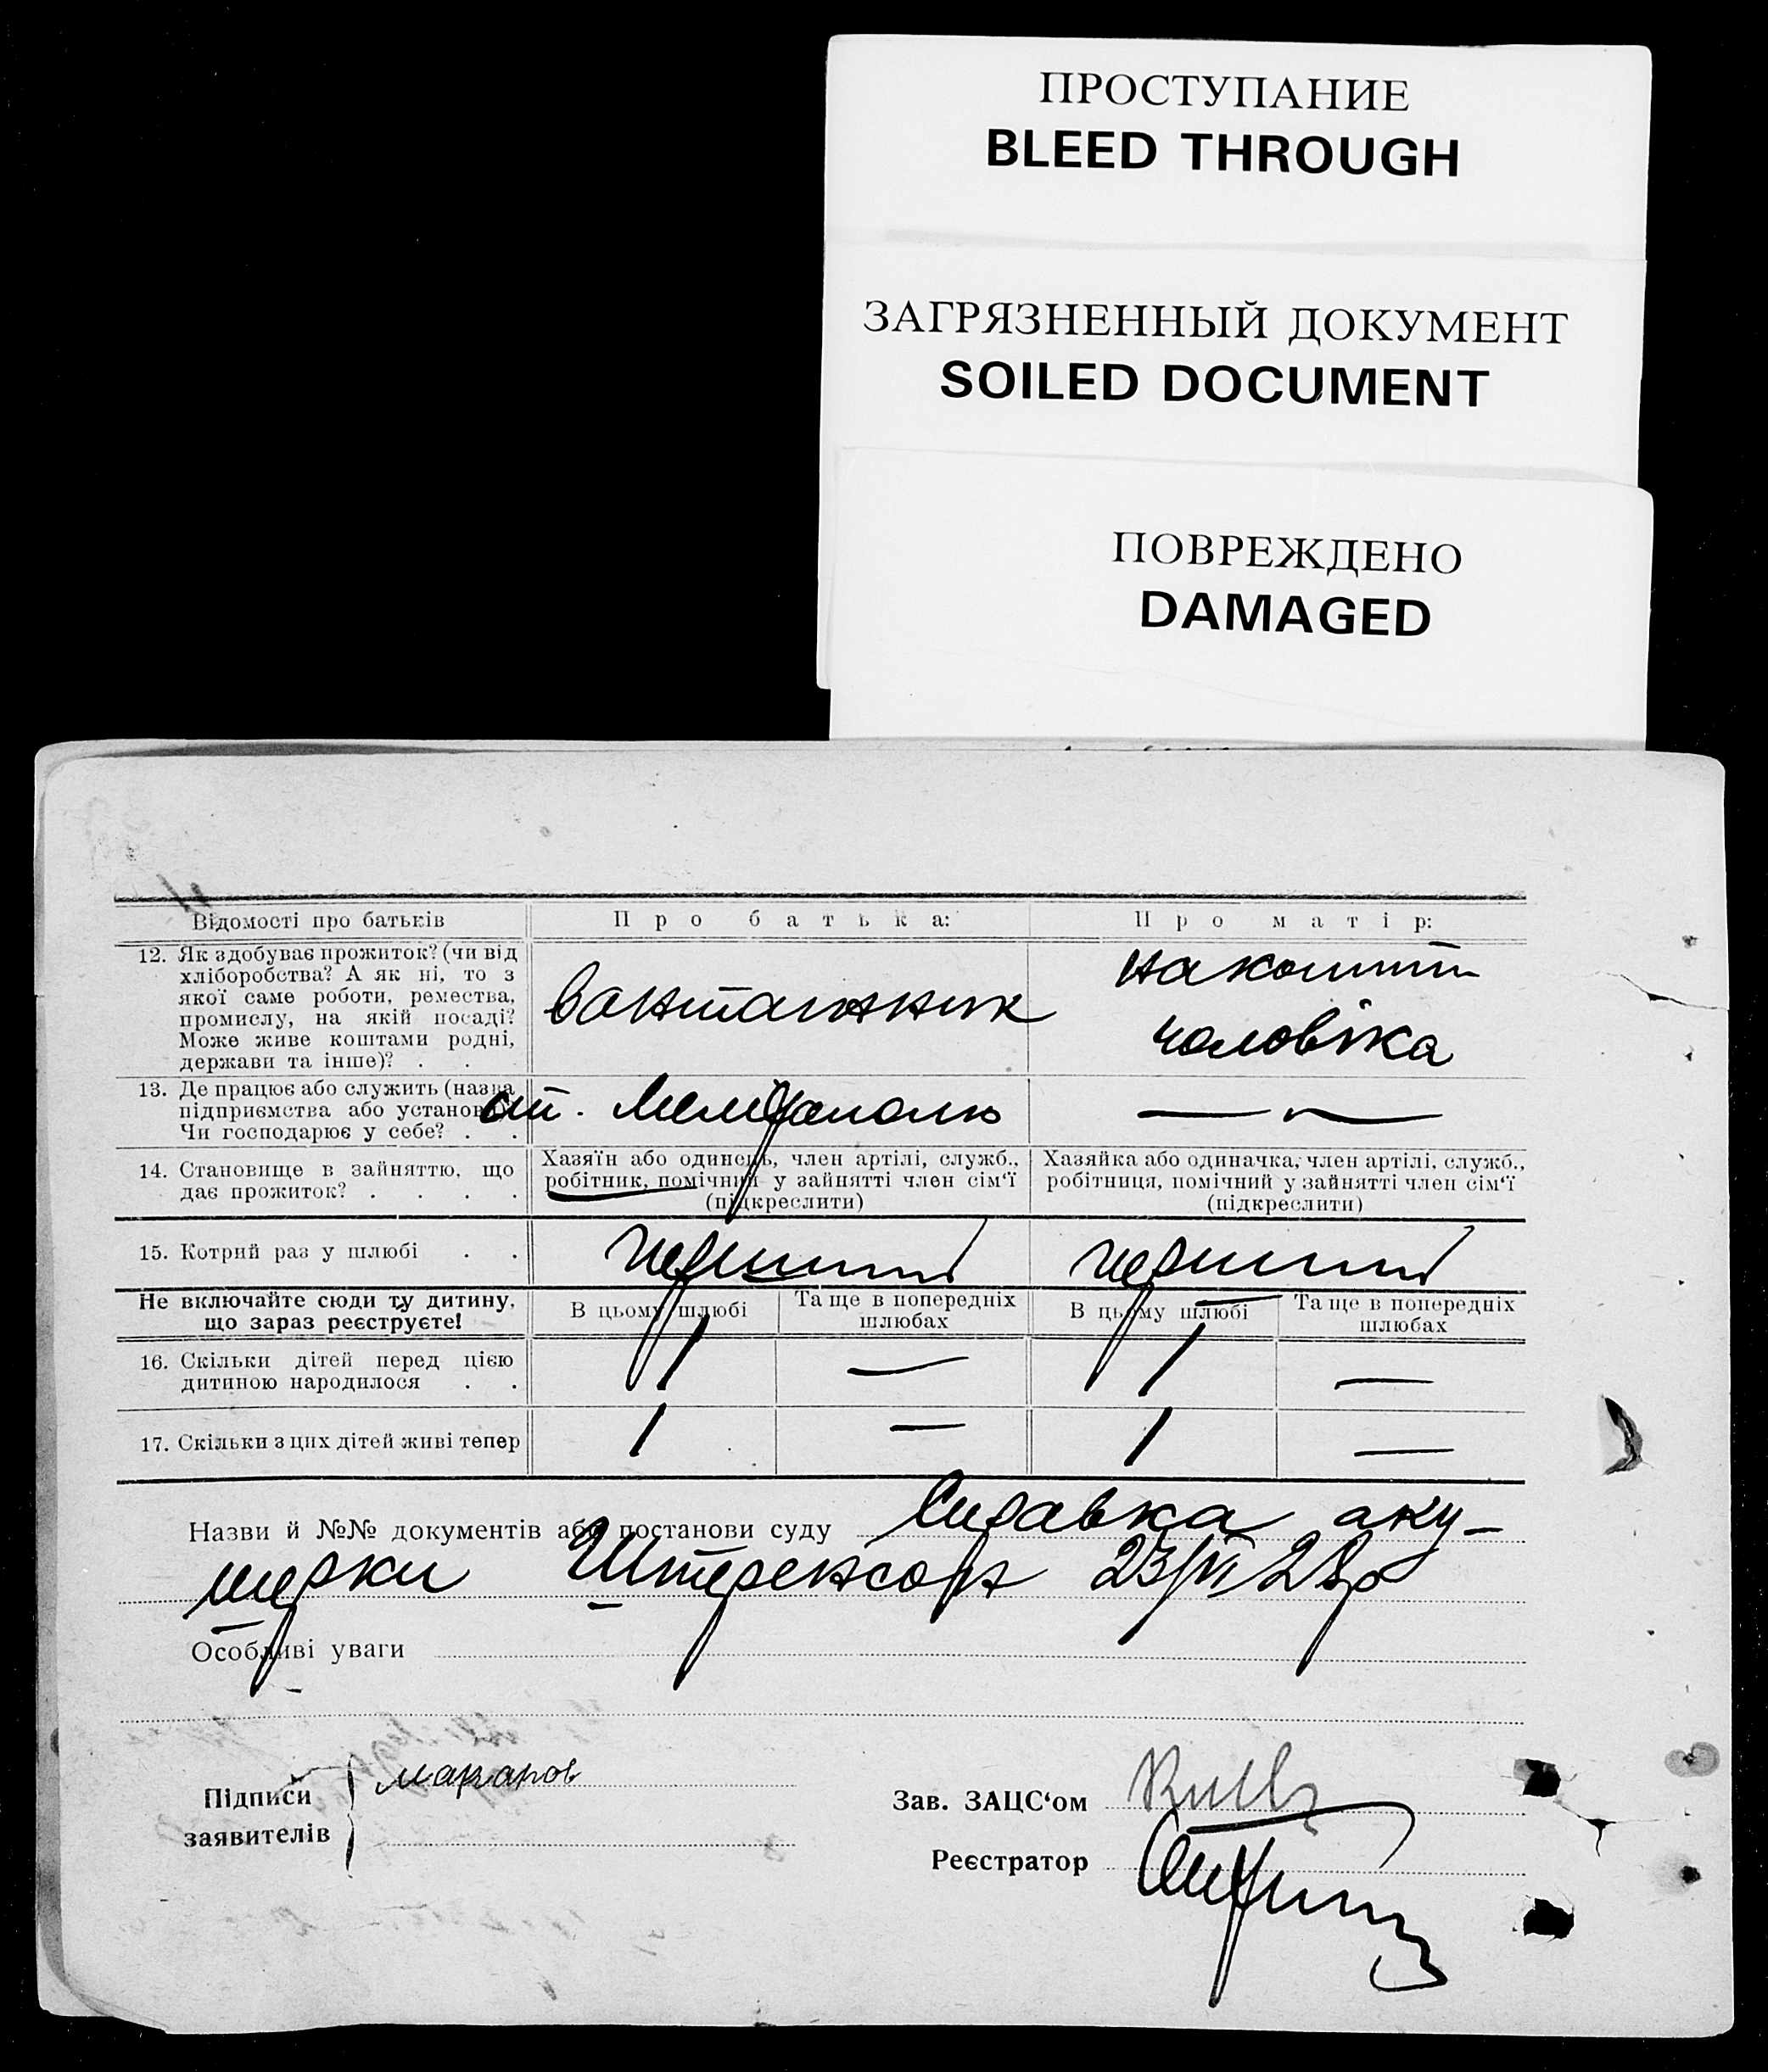 ПРОСТУПАНИЕ
BLEED THROUGH
ЗАГРЯЗНЕННЫЙ ДОКУМЕНТ
SOILED DOCUMENT
ПОВРЕЖДЕНО
DAMAGED
Відомості про батьків
Про батька:
Про матір:
12. Як здобуває прожиток? (чи від
хліборобства? А як ні, то з
якої саме роботи, ремества,
промислу, на якій посаді?
Може живе коштами родні,
держави та інше)? . .
вантажник
на кошти
чоловіка
13. Де працює або служить (назва
підприємства або установи)?
Чи господарює у себе? . .
ст. Мелітополь
14. Становище в зайняттю, що
дає прожиток? . . . .
Хазяїн або одинець, член артілі, служб.,
робітник, помічний у зайнятті член сім'ї
(підкреслити)
Хазяйка або одиначка, член артілі, служб.,
робітниця, помічний у зайнятті член сім'ї
(підкреслити)
15. Котрий раз у шлюбі . .
перший
перший
Не включайте сюди ту дитину,
що зараз реєструєте!
В цьому шлюбі
Та ще в попередніх
шлюбах
В цьому шлюбі
Та ще в попередніх
шлюбах
16. Скільки дітей перед цією
дитиною народилося . .
1 — 1 —
17. Скільки з цих дітей живі тепер
1 — 1 —
Назви й №№ документів або постанови суду Справка аку-
шерки
Особливі уваги
Підписи
заявителів
макаров
Зав. ЗАЦС'ом
Реєстратор